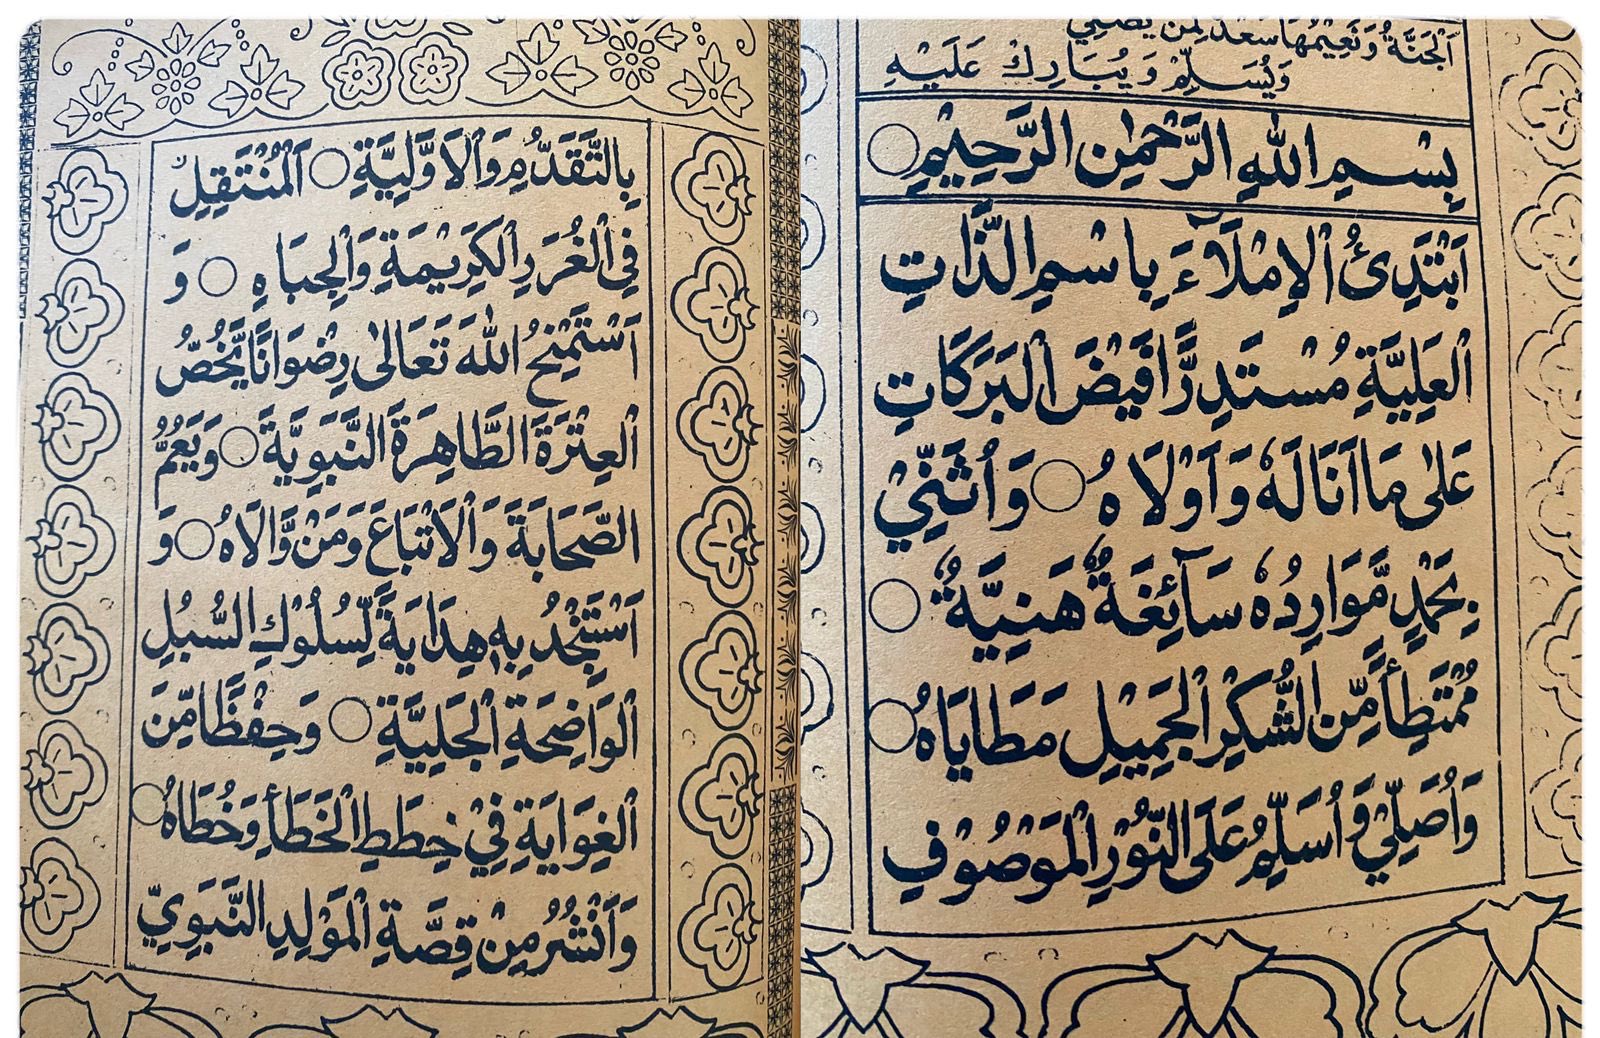 اَلْجَنَّةُ وَنَعِيْمُهَا سَعْدٌ لِمَنْ يُصَلِّيْ
وَيُسَلِّمْ وَيُبَارِكْ عَلَيْهِ
بِسْمِ اللّٰهِ الرَّحْمٰنِ الرَّحِيْمِ ○
اَبْتَدِئُ الْاِمْلَآءَ بِاسْمِ الذَّاتِ
الْعَلِيَّةِ مُسْتَدِرًّا فَيْضَ الْبَرَكَاتِ
عَلٰى مَا اَنَالَهٗ وَاَوْلَاهُ ○ وَاُثَنِّيْ
بِحَمْدٍ مَّوَارِدُهٗ سَآئِغَةٌ هَنِيَّةٌ ○
مُمْتَطِأً مِّنَ الشُّكْرِ الْجَمِيْلِ مَطَايَاهُ ○
وَاُصَلِّيْ وَاُسَلِّمُ عَلَى النُّوْرِ الْمَوْصُوْفِ
بِالتَّقَدُّمِ وَالْاَوَّلِيَّةِ ○ اَلْمُنْتَقِلِ
فِي الْغُرَرِ الْكَرِيْمَةِ وَالْجِبَاهِ ○ وَ
اَسْتَمْنِحُ اللّٰهَ تَعَالٰى رِضْوَانًا يَّخُصُّ
الْعِتْرَةَ الطَّاهِرَةَ النَّبَوِيَّةَ ○ وَيَعُمُّ
الصَّحَابَةَ وَالْاَتْبَاعَ وَمَنْ وَّالَاهُ ○ وَ
اَسْتَجْدُ بِهٖ هِدَايَةً لِّسُلُوْكِ السُّبُلِ
الْوَاضِحَةِ الْجَلِيَّةِ ○ وَحِفْظًا مِّنَ
الْغِوَايَةِ فِيْ خِطَطِ الْخَطَأِ وَخُطَاهُ ○
وَاَنْشُرُ مِنْ قِصَّةِ الْمَوْلِدِ النَّبَوِيِّ